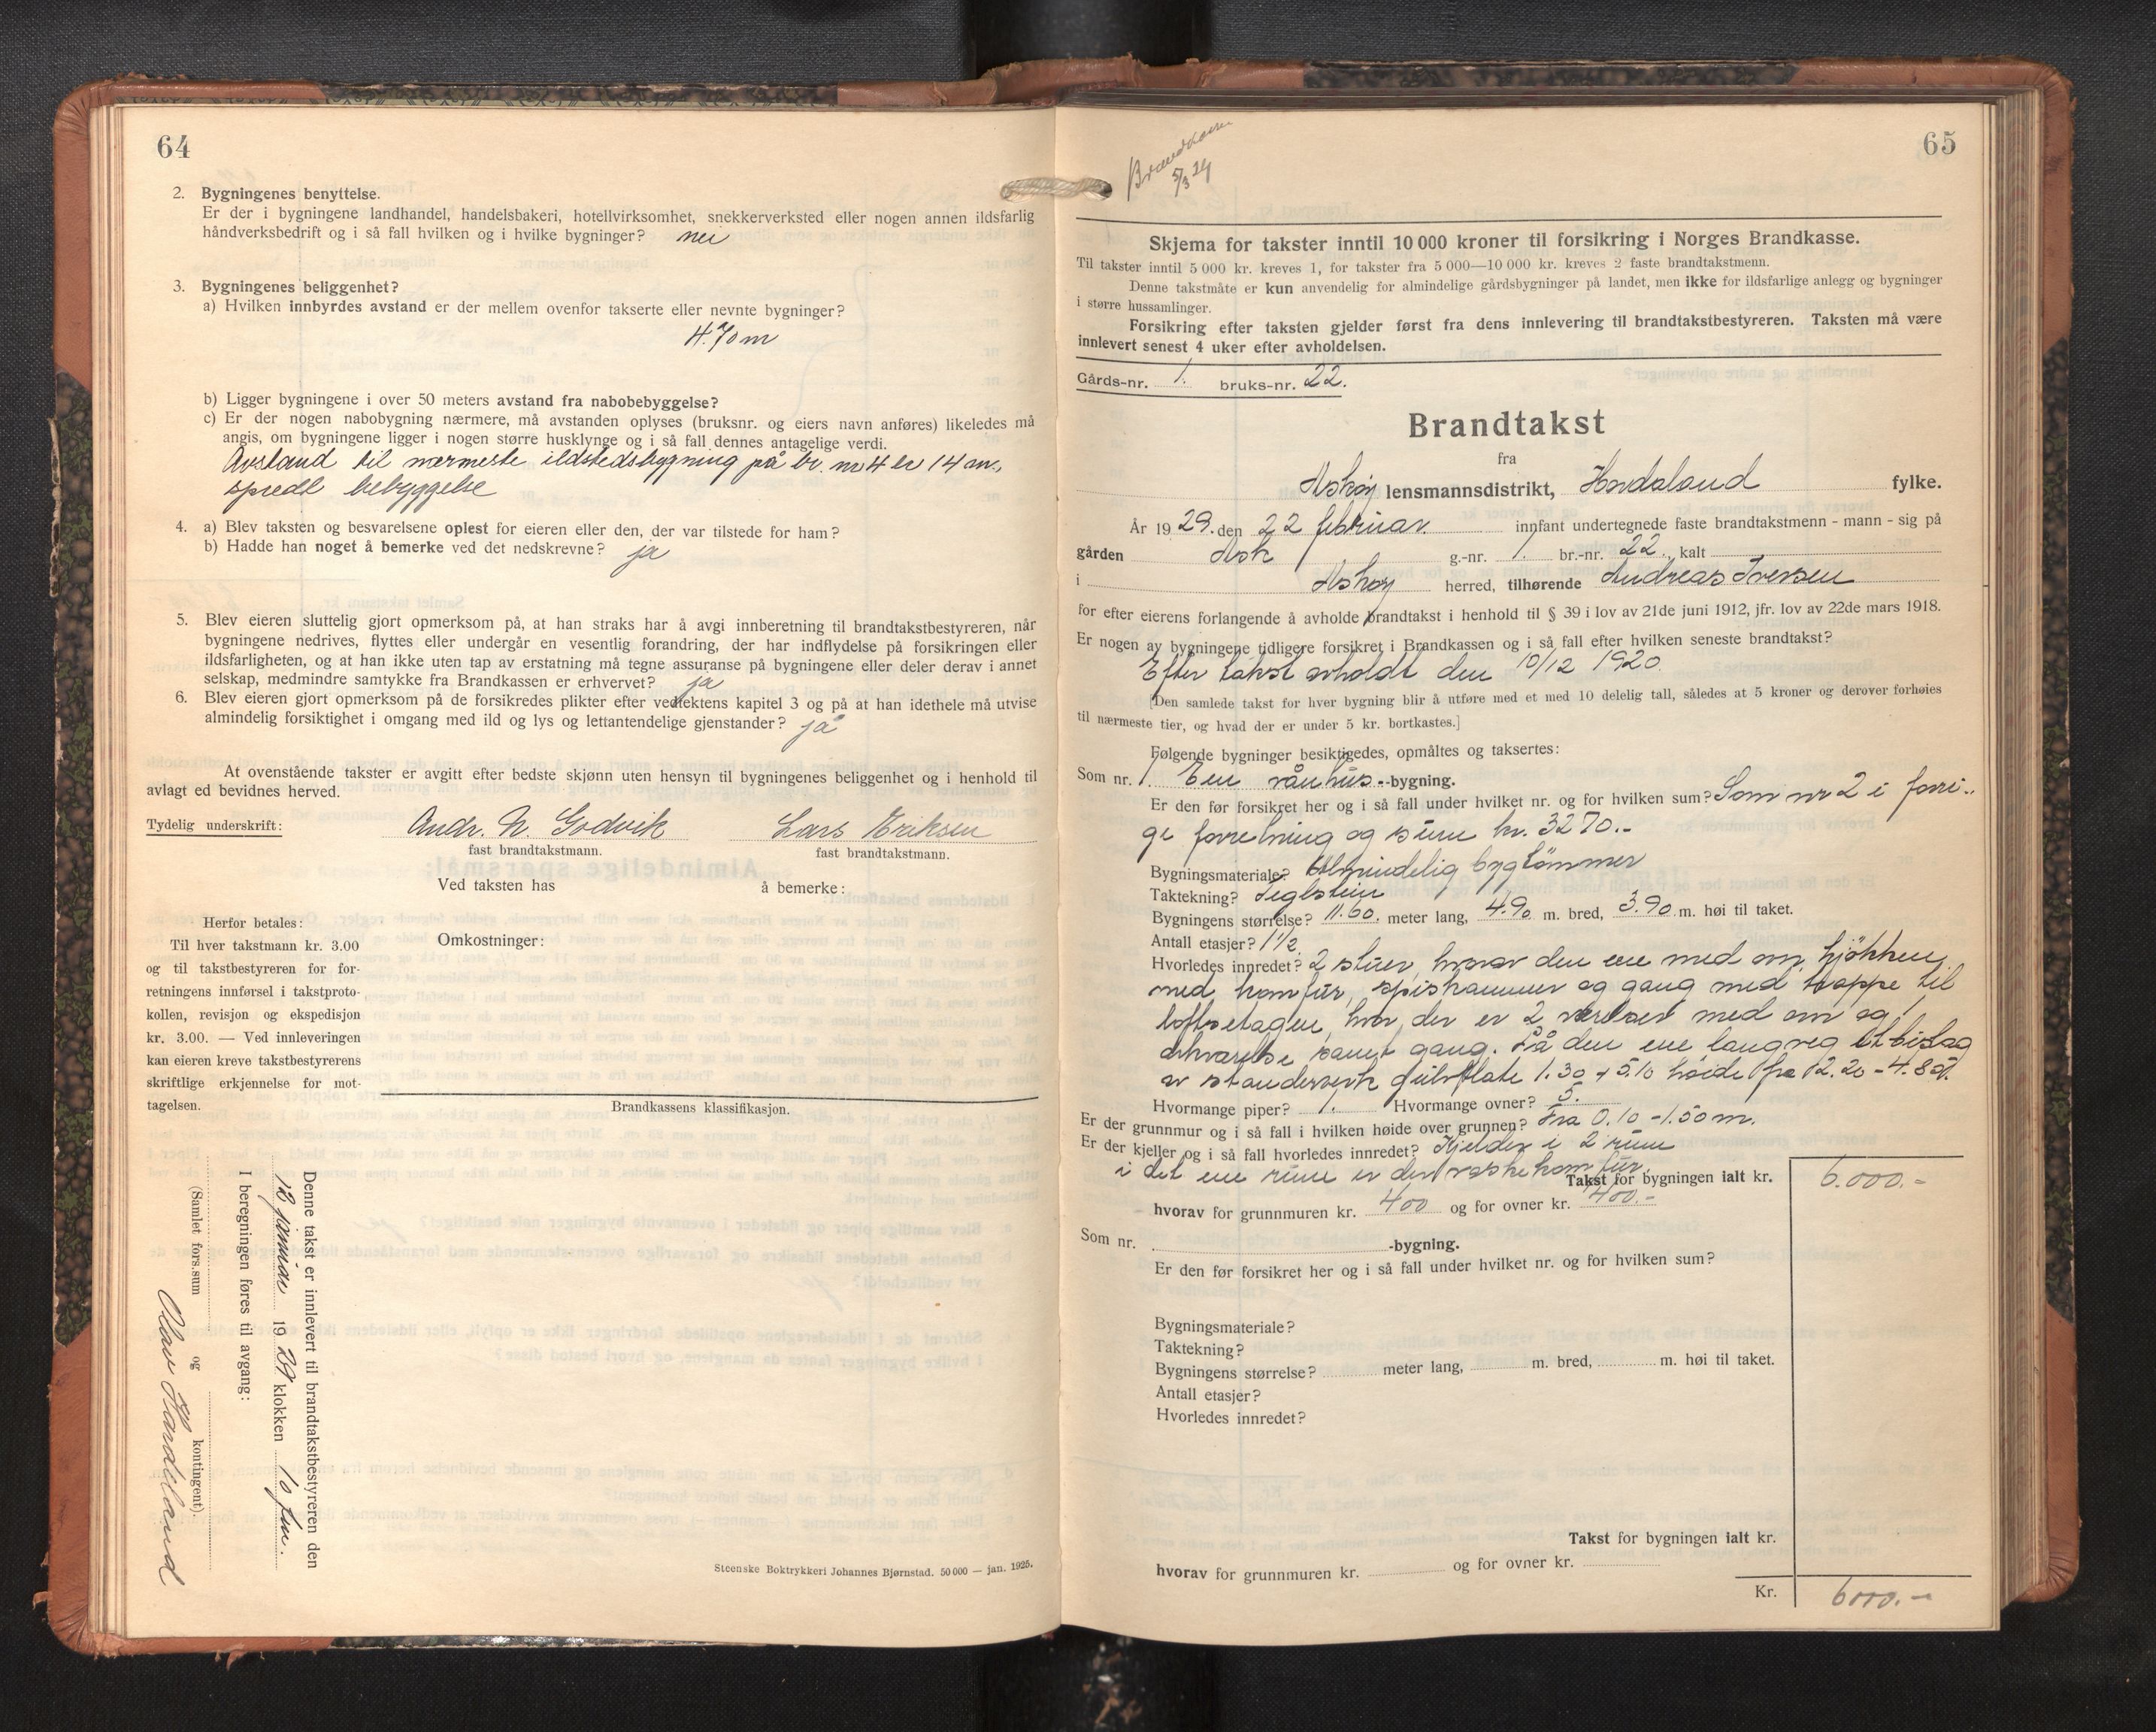 64
2. Bygningenes benyttelse.
Er der i bygningene landhandel, handelsbakeri, hotellvirksomhet, snekkerverksted eller nogen annen ildsfarlig
håndverksbedrift og i så fall hvilken og i hvilke bygninger? nei
3. Bygningenes beliggenhet?
a) Hvilken innbyrdes avstand er der mellem ovenfor takserte eller nevnte bygninger?
4.70 m
b) Ligger bygningene i over 50 meters avstand fra nabobebyggelse?
c) Er der nogen nabobygning nærmere, må avstanden oplyses (bruksnr. og eiers navn anføres) likeledes må
angis, om bygningene ligger i nogen større husklynge og i så fall dennes antagelige verdi.
Avstand til nærmeste ildstedsbygning på br. nr 4 er 14 m,
spredt bebyggelse
4. a) Blev taksten og besvarelsene oplest for eieren eller den, der var tilstede for ham?
b) Hadde han noget å bemerke ved det nedskrevne? ja
5. Blev eieren sluttelig gjort opmerksom på, at han straks har å avgi innberetning til brandtakstbestyreren, når
bygningene nedrives, flyttes eller undergår en vesentlig forandring, der har indflydelse på forsikringen eller
ildsfarligheten, og at han ikke uten tap av erstatning må tegne assuranse på bygningene eller deler derav i annet
selskap, medmindre samtykke fra Brandkassen er erhvervet? ja
6. Blev eieren gjort opmerksom på de forsikredes plikter efter vedtektens kapitel 3 og på at han idethele må utvise
almindelig forsiktighet i omgang med ild og lys og lettantendelige gjenstander? ja
At ovenstående takster er avgitt efter bedste skjønn uten hensyn til bygningenes beliggenhet og i henhold til
avlagt ed bevidnes herved.
Tydelig underskrift: Andr. N. Godvik Lars Eriksen
fast brandtakstmann. fast brandtakstmann.
Ved taksten has å bemerke:
Herfor betales:
Til hver takstmann kr. 3.00
og til takstbestyreren for for-
retningens innførsel i takstproto-
kollen, revisjon og ekspedisjon
kr. 3.00. — Ved innleveringen
kan eieren kreve takstbestyrerens
skriftlige erkjennelse for mot-
tagelsen.
Omkostninger:
Brandkassens klassifikasjon.
Denne takst er innlevert til brandtakstbestyreren den
19 29 klokken 10 fm.
I beregningen føres til avgang:
(Samlet fors.sum og kontingent).
Olav Hardeland
Steenske Boktrykkeri Johannes Bjørnstad. 50 000 — jan. 1925.
65
5/3 29
Skjema for takster inntil 10 000 kroner til forsikring i Norges Brandkasse.
Til takster inntil 5 000 kr. kreves 1, for takster fra 5 000—10 000 kr. kreves 2 faste brandtakstmenn.
Denne takstmåte er kun anvendelig for almindelige gårdsbygninger på landet, men ikke for ildsfarlige anlegg og bygninger
i større hussamlinger.
Forsikring efter taksten gjelder først fra dens innlevering til brandtakstbestyreren. Taksten må være
innlevert senest 4 uker efter avholdelsen.
Gårds-nr. 1. bruks-nr. 22.
Brandtakst
fra
Askøy lensmannsdistrikt, Hordaland fylke.
År 19 29. den 22 februar. innfant undertegnede faste brandtakstmenn - mann - sig på
gården Ask g.-nr. 1. br.-nr. 22., kalt
i Askøy herred, tilhørende Andreas Iversen
for efter eierens forlangende å avholde brandtakst i henhold til § 39 i lov av 21de juni 1912, jfr. lov av 22de mars 1918.
Er nogen av bygningene tidligere forsikret i Brandkassen og i så fall efter hvilken seneste brandtakst?
Efter takst avholdt den 10/12 1920.
[Den samlede takst for hver bygning blir å utføre med et med 10 delelig tall, således at 5 kroner og derover forhøies
til nærmeste tier, og hvad der er under 5 kr. bortkastes.]
Følgende bygninger besiktigedes, opmåltes og taksertes:
Som nr. 1 En vånhus--bygning.
Er den før forsikret her og i så fall under hvilket nr. og for hvilken sum? Som nr 2 i forri-
ge forretning og sum kr. 3270.-
Bygningsmateriale? Almindelig bygtömmer
Taktekning? Teglstein
Bygningens størrelse? 11.60. meter lang, 4.90 m. bred, 3.90 m. høi til taket.
Antall etasjer? 1 1/2.
Hvorledes innredet? 2 stuer, hvorav den ene med om, kjökken
med komfur, spiskammer og gang med trappe til
loftsetagen, hvor der er 2 værelser med om og 1
samt gang. På den ene langveg et bislag
av standerverk 1.30 x 5.10 höide fra 2.20 - 4.80.
Hvormange piper? 1. Hvormange ovner? 5.
Er der grunnmur og i så fall i hvilken høide over grunnen? Fra 0.10 - 1.50 m.
Er der kjeller og i så fall hvorledes innredet? Kjelder i 2 rum
i det ene rum er der vaskekomfur.
Takst for bygningen ialt kr. 6.000.-
hvorav for grunnmuren kr. 400 og for ovner kr. 400.-
Som nr. -bygning.
Er den før forsikret her og i så fall under hvilket nr. og for hvilken sum?
Bygningsmateriale?
Taktekning?
Bygningens størrelse? meter lang, m. bred, m. høi til taket.
Antall etasjer?
Hvorledes innredet?
Takst for bygningen ialt kr.
hvorav for grunnmuren kr. og for ovner kr.
Kr. 6000.-